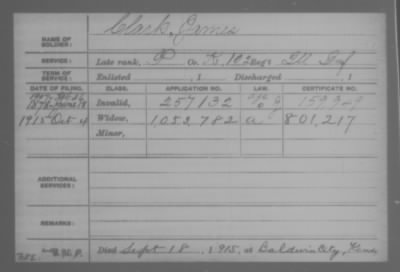 Clark, James
NAME OF SOLDIER:
SERVICE: Late rank, P Co. K, 102 Reg't Ill Inf
TERM OF SERVICE: Enlisted , 1 Discharged , 1
DATE OF FILING. CLASS. APPLICATION NO. LAW. CERTIFICATE NO.
1878 June 18 Invalid, 257132
1915 Oct 4 Widow, 1,053,782 a 801,217
Minor,
ADDITIONAL SERVICES:
REMARKS:
Died Sept 18, 1915, at Baldwin City, Kans